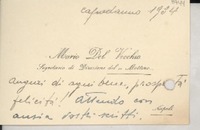 capodanno 1934
Mario Del Vecchio
Segretario di Direzione del „ Mattino „
Auguri di ogni bene, prosperità
felicità! Attendo con
ansia vostri scritti.
Napoli